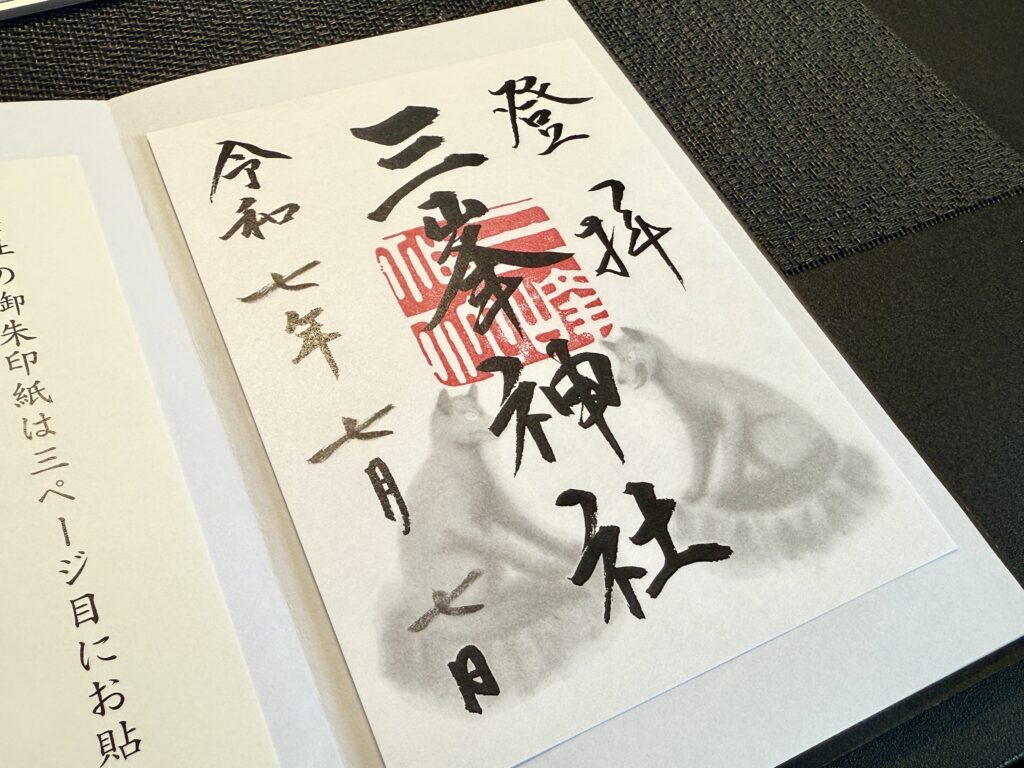 登拝
三峯神社
令和七年七月七日
社の御朱印紙は三ページ目にお貼